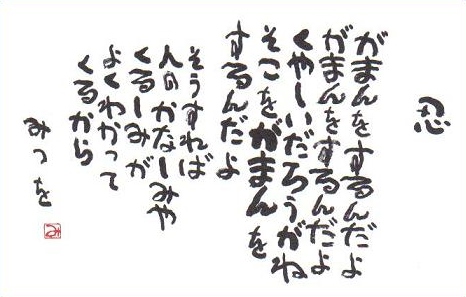 忍
がまんをするんだよ
がまんをするんだよ
くやしいだろうがね
そこをがまんを
するんだよ
そうすれば
人のかなしみや
くるしみが
よくわかって
くるから
みつを
み